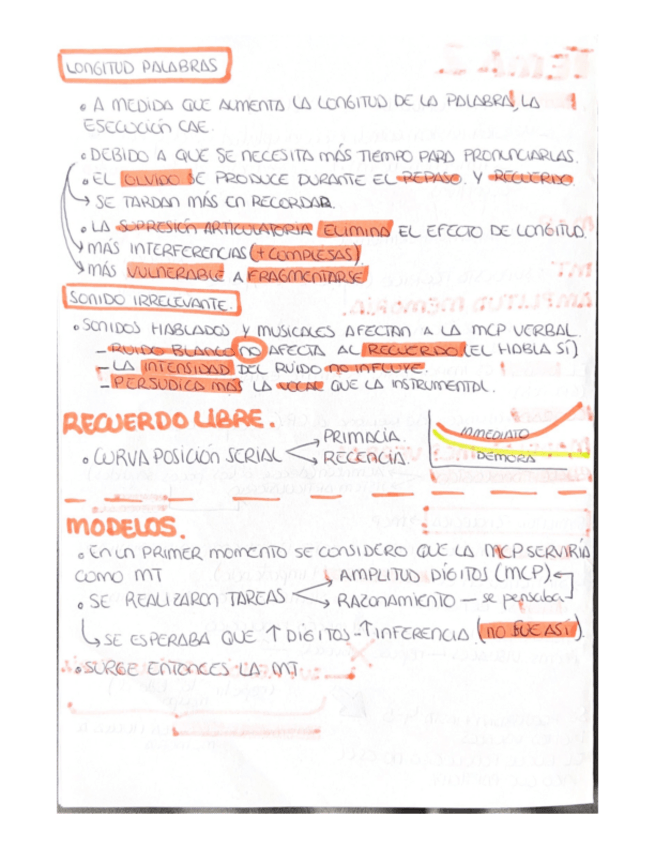 LONGITUD PALABRAS
• A MEDIDA QUE AUMENTA LA LONGITUD DE LA PALABRA, LA
ESECUCIÓN CAE.
• DEBIDO A QUE SE NECESITA MÁS TIEMPO PARA PRONUNCIARLAS.
• EL OLVIDO SE PRODUCE DURANTE EL REPASO. Y RECUERDO.
→ SE TARDAN MÁS EN RECORDAR.
• LA SUPRESIÓN ARTICULATORIA ELIMINA EL EFECTO DE LONGITUD.
→ MÁS INTERFERENCIAS (+ COMPLESAS)
→ MÁS VULNERABLE A FRAGMENTARSE
SONIDO IRRELEVANTE.
• SONIDOS HABLADOS Y MUSICALES AFECTAN A LA MCP VERBAL.
- RUIDO BLANCO NO AFECTA AL RECUERDO (EL HABLA SÍ)
- LA INTENSIDAD DEL RUIDO NO INFLUYE.
- PERSUDICA MAS LA VOCAL QUE LA INSTRUMENTAL.
RECUERDO LIBRE.
• CURVA POSICIÓN SERIAL → PRIMACÍA.
→ RECENCIA.
INMEDIATO
DEMORA
MODELOS.
• EN UN PRIMER MOMENTO SE CONSIDERO QUE LA MCP SERVIRÍA
COMO MT
• SE REALIZARON TAREAS → AMPLITUD DÍGITOS (MCP)
→ RAZONAMIENTO - se pensaba
↳ SE ESPERABA QUE ↑ DÍGITOS - ↑ INFERENCIA (NO FUE ASÍ).
• SURGE ENTONCES LA MT.